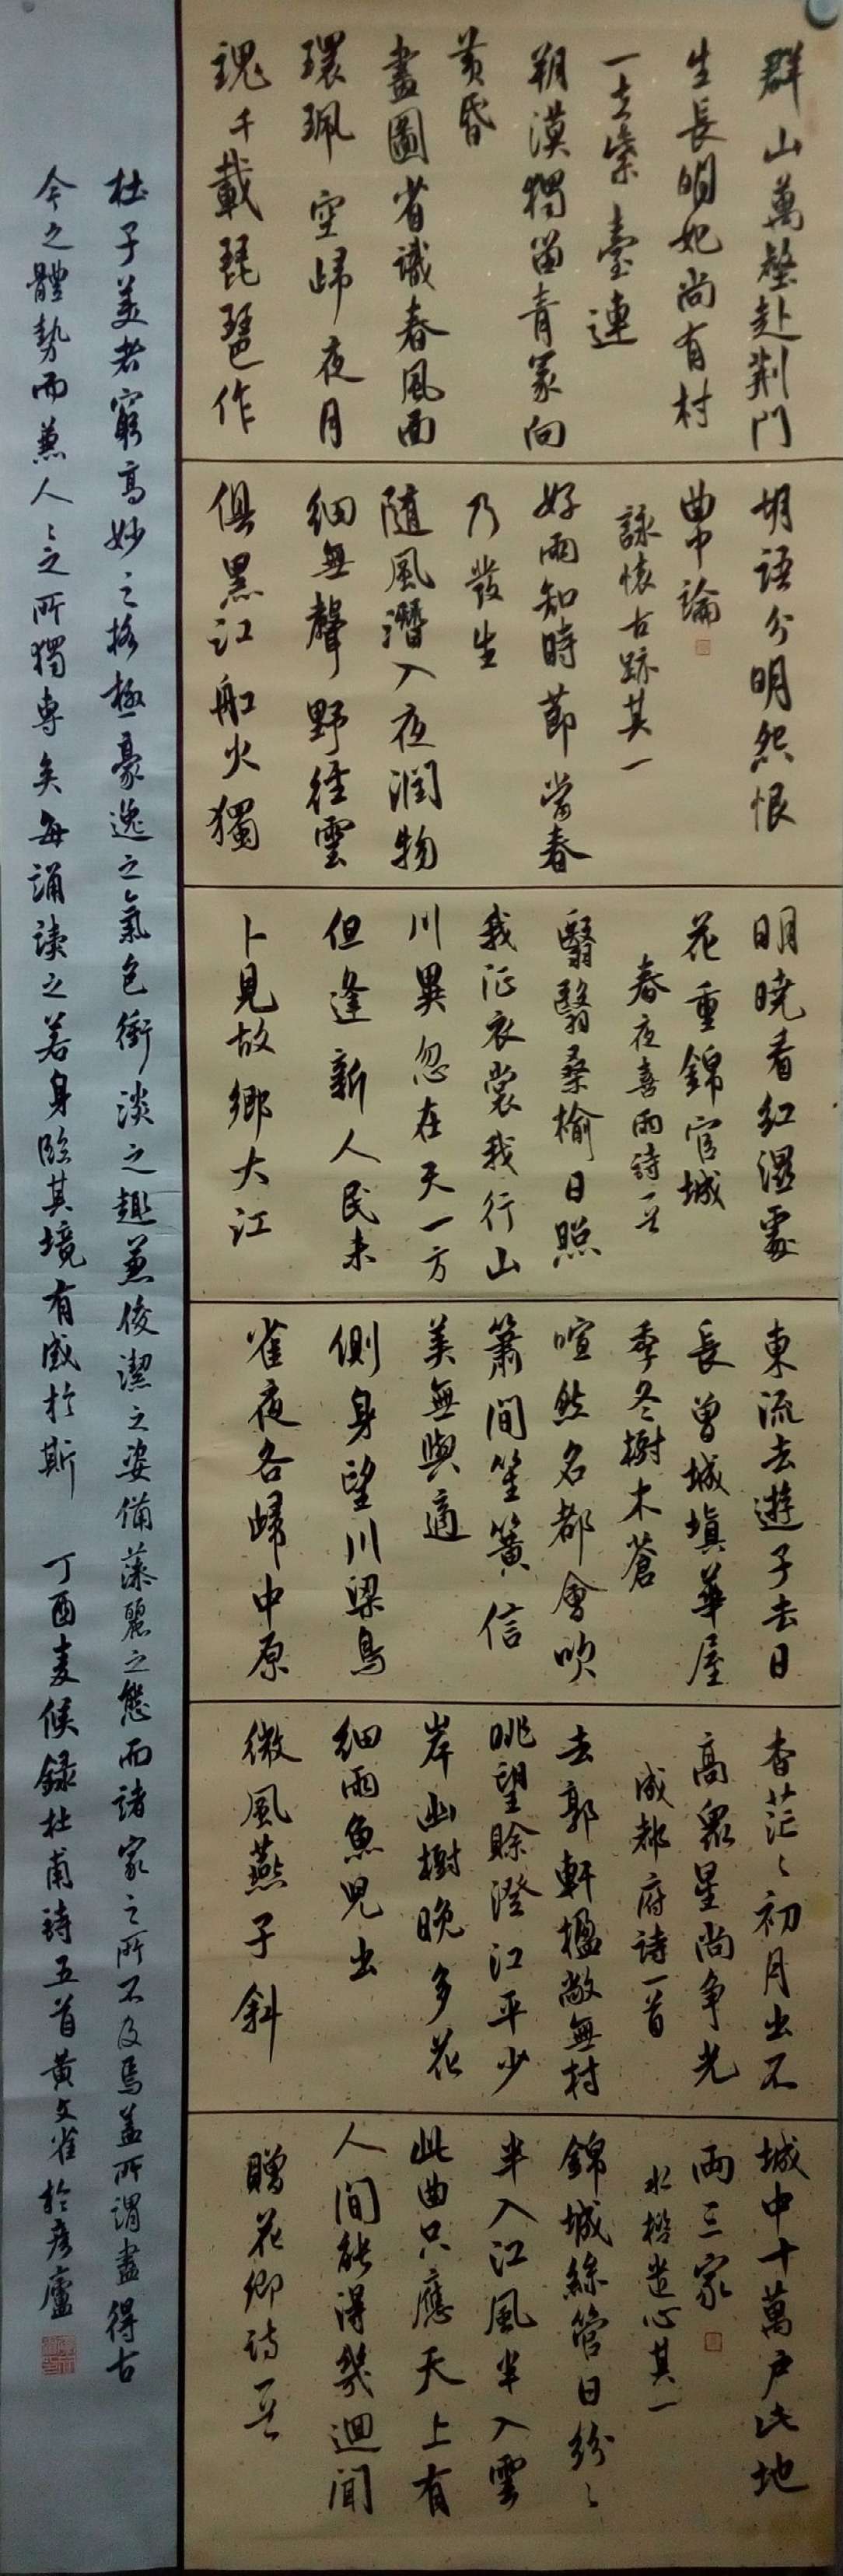 群山萬壑赴荆門
生長明妃尚有村
一去紫臺連
朔漠獨留青冢向
黄昏
畫圖省識春風面
環珮空歸夜月
魂千載琵琶作
胡語分明怨恨
曲中論
詠懷古跡其一
好雨知時節當春
乃發生
随風潛入夜潤物
細無聲野徑雲
俱黑江船火獨
明曉看紅濕處
花重錦官城
春夜喜雨詩一首
翳翳桑榆日照
我征衣裳我行山
川異忽在天一方
但逢新人民未
卜見故鄉大江
東流去遊子去日
長曾城填華屋
季冬樹木蒼
喧然名都會吹
簫間笙簧信
美無與適
側身望川梁鳥
雀夜各歸中原
杳茫々初月出不
高衆星尚争光
成都府詩一首
去郭軒楹敞無村
眺望賒澄江平少
岸幽樹晚多花
細雨魚兒出
微風燕子斜
城中十萬户此地
兩三家
水檻遣心其一
錦城絲管日紛々
半入江風半入雲
此曲只應天上有
人間能得幾迴聞
贈花卿詩一首
杜子美者窮高妙之格極豪逸之氣包衝淡之趣兼俊潔之姿備藻麗之態而諸家之所不及焉蓋所謂盡得古
今之體勢而兼人々之所獨專矣每誦读之若身臨其境有感於斯 丁酉麦候録杜甫詩五首黄文雀於彦廬